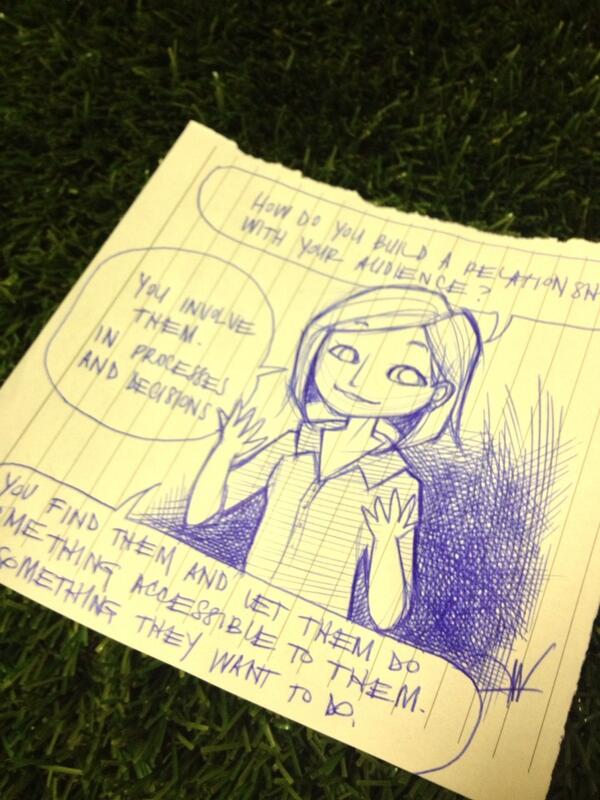 HOW DO YOU BUILD A RELATIONSH
WITH YOUR AUDIENCE?
YOU INVOLVE
THEM.
IN PROCESSES
AND DECISIONS
YOU FIND THEM AND LET THEM DO
OMETHING ACCESSIBLE TO THEM.
SOMETHING THEY WANT TO DO.